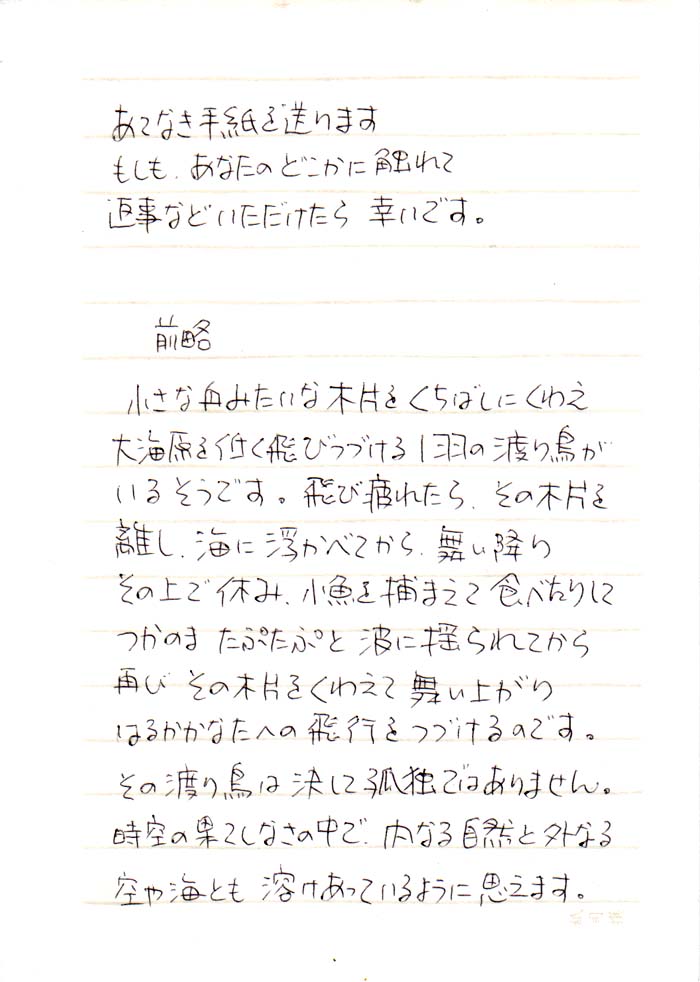 あてなき手紙を送ります
もしも、あなたのどこかに触れて
返事などいただけたら 幸いです。
前略
小さな舟みたいな木片をくちばしにくわえ
大海原を低く飛びつづける1羽の渡り鳥が
いるそうです。飛び疲れたら、その木片を
離し、海に浮かべてから、舞い降り
その上で休み、小魚を捕まえて食べたりして
つかのま たぷたぷと波に揺られてから
再び その木片をくわえて 舞い上がり
はるかかなたへの飛行をつづけるのです。
その渡り鳥は決して孤独ではありません。
時空の果てしなさの中で、内なる自然と外なる
空や海とも 溶けあっているように思えます。